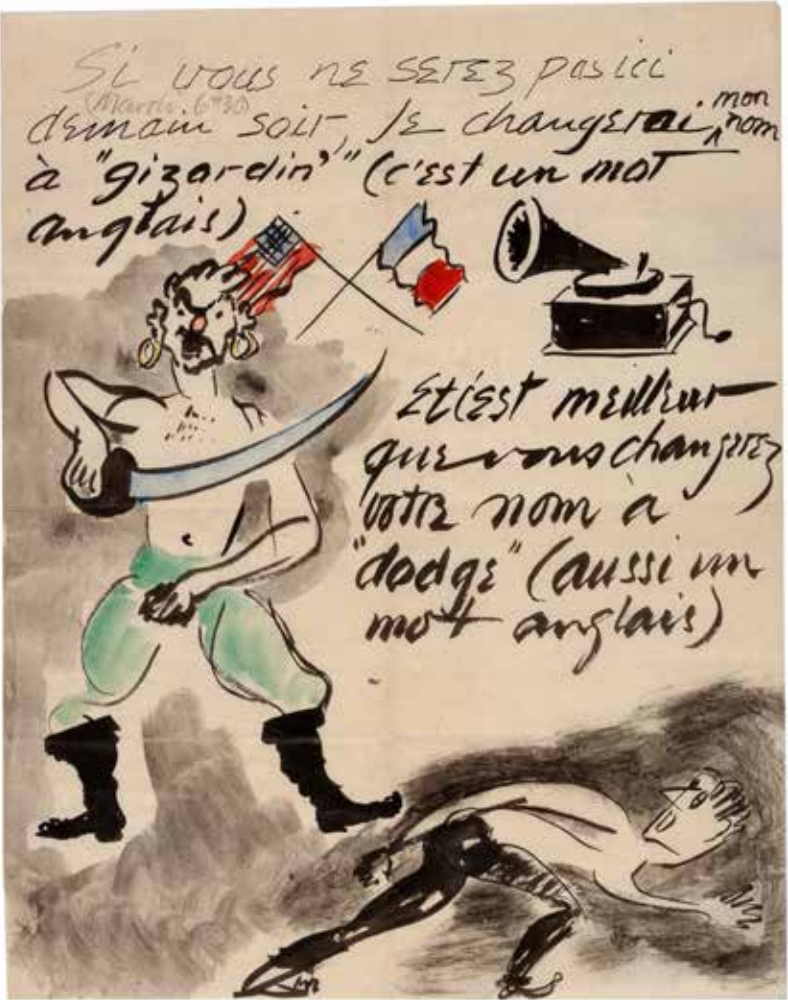 Si vous ne serez pas ici
(March 6th 30)
demain soir, je changerai mon nom
à "gizardin'" (c'est un mot
anglais)
Et c'est meilleur
que vous changerez
votre nom à
"dodge" (aussi un
mott anglais)